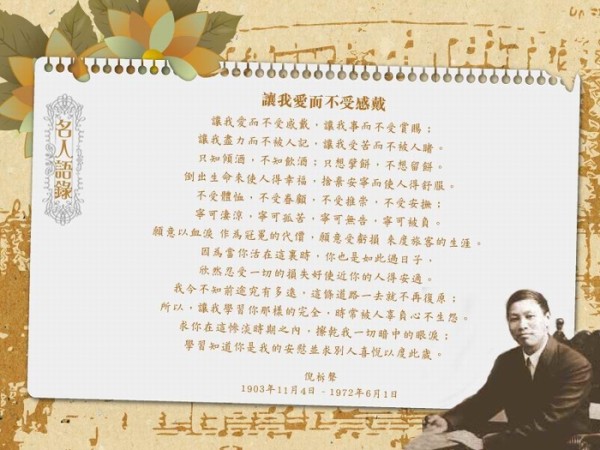 名人語錄
讓我愛而不受感戴
讓我愛而不受感戴，讓我事而不受賞賜；
讓我盡力而不被人記，讓我受苦而不被人睹。
只知傾酒，不知飲酒；只想擘餅，不想留餅。
倒出生命來使人得幸福，捨棄安寧而使人得舒服。
不受體恤，不受眷顧，不受推崇，不受安撫；
寧可淒涼，寧可孤苦，寧可無告，寧可被負。
願意以血淚 作為冠冕的代價，願意受虧損 來度旅客的生涯。
因為當你活在這裏時，你也是如此過日子，
欣然忍受一切的損失好使近你的人得安適。
我今不知前途究有多遠，這條道路一去就不再復原；
所以，讓我學習你那樣的完全，時常被人辜負心不生怨。
求你在這慘淡時期之內，擦乾我一切暗中的眼淚；
學習知道你是我的安慰並求別人喜悅以度此歲。
倪柝聲
1903年11月4日 ~ 1972年6月1日